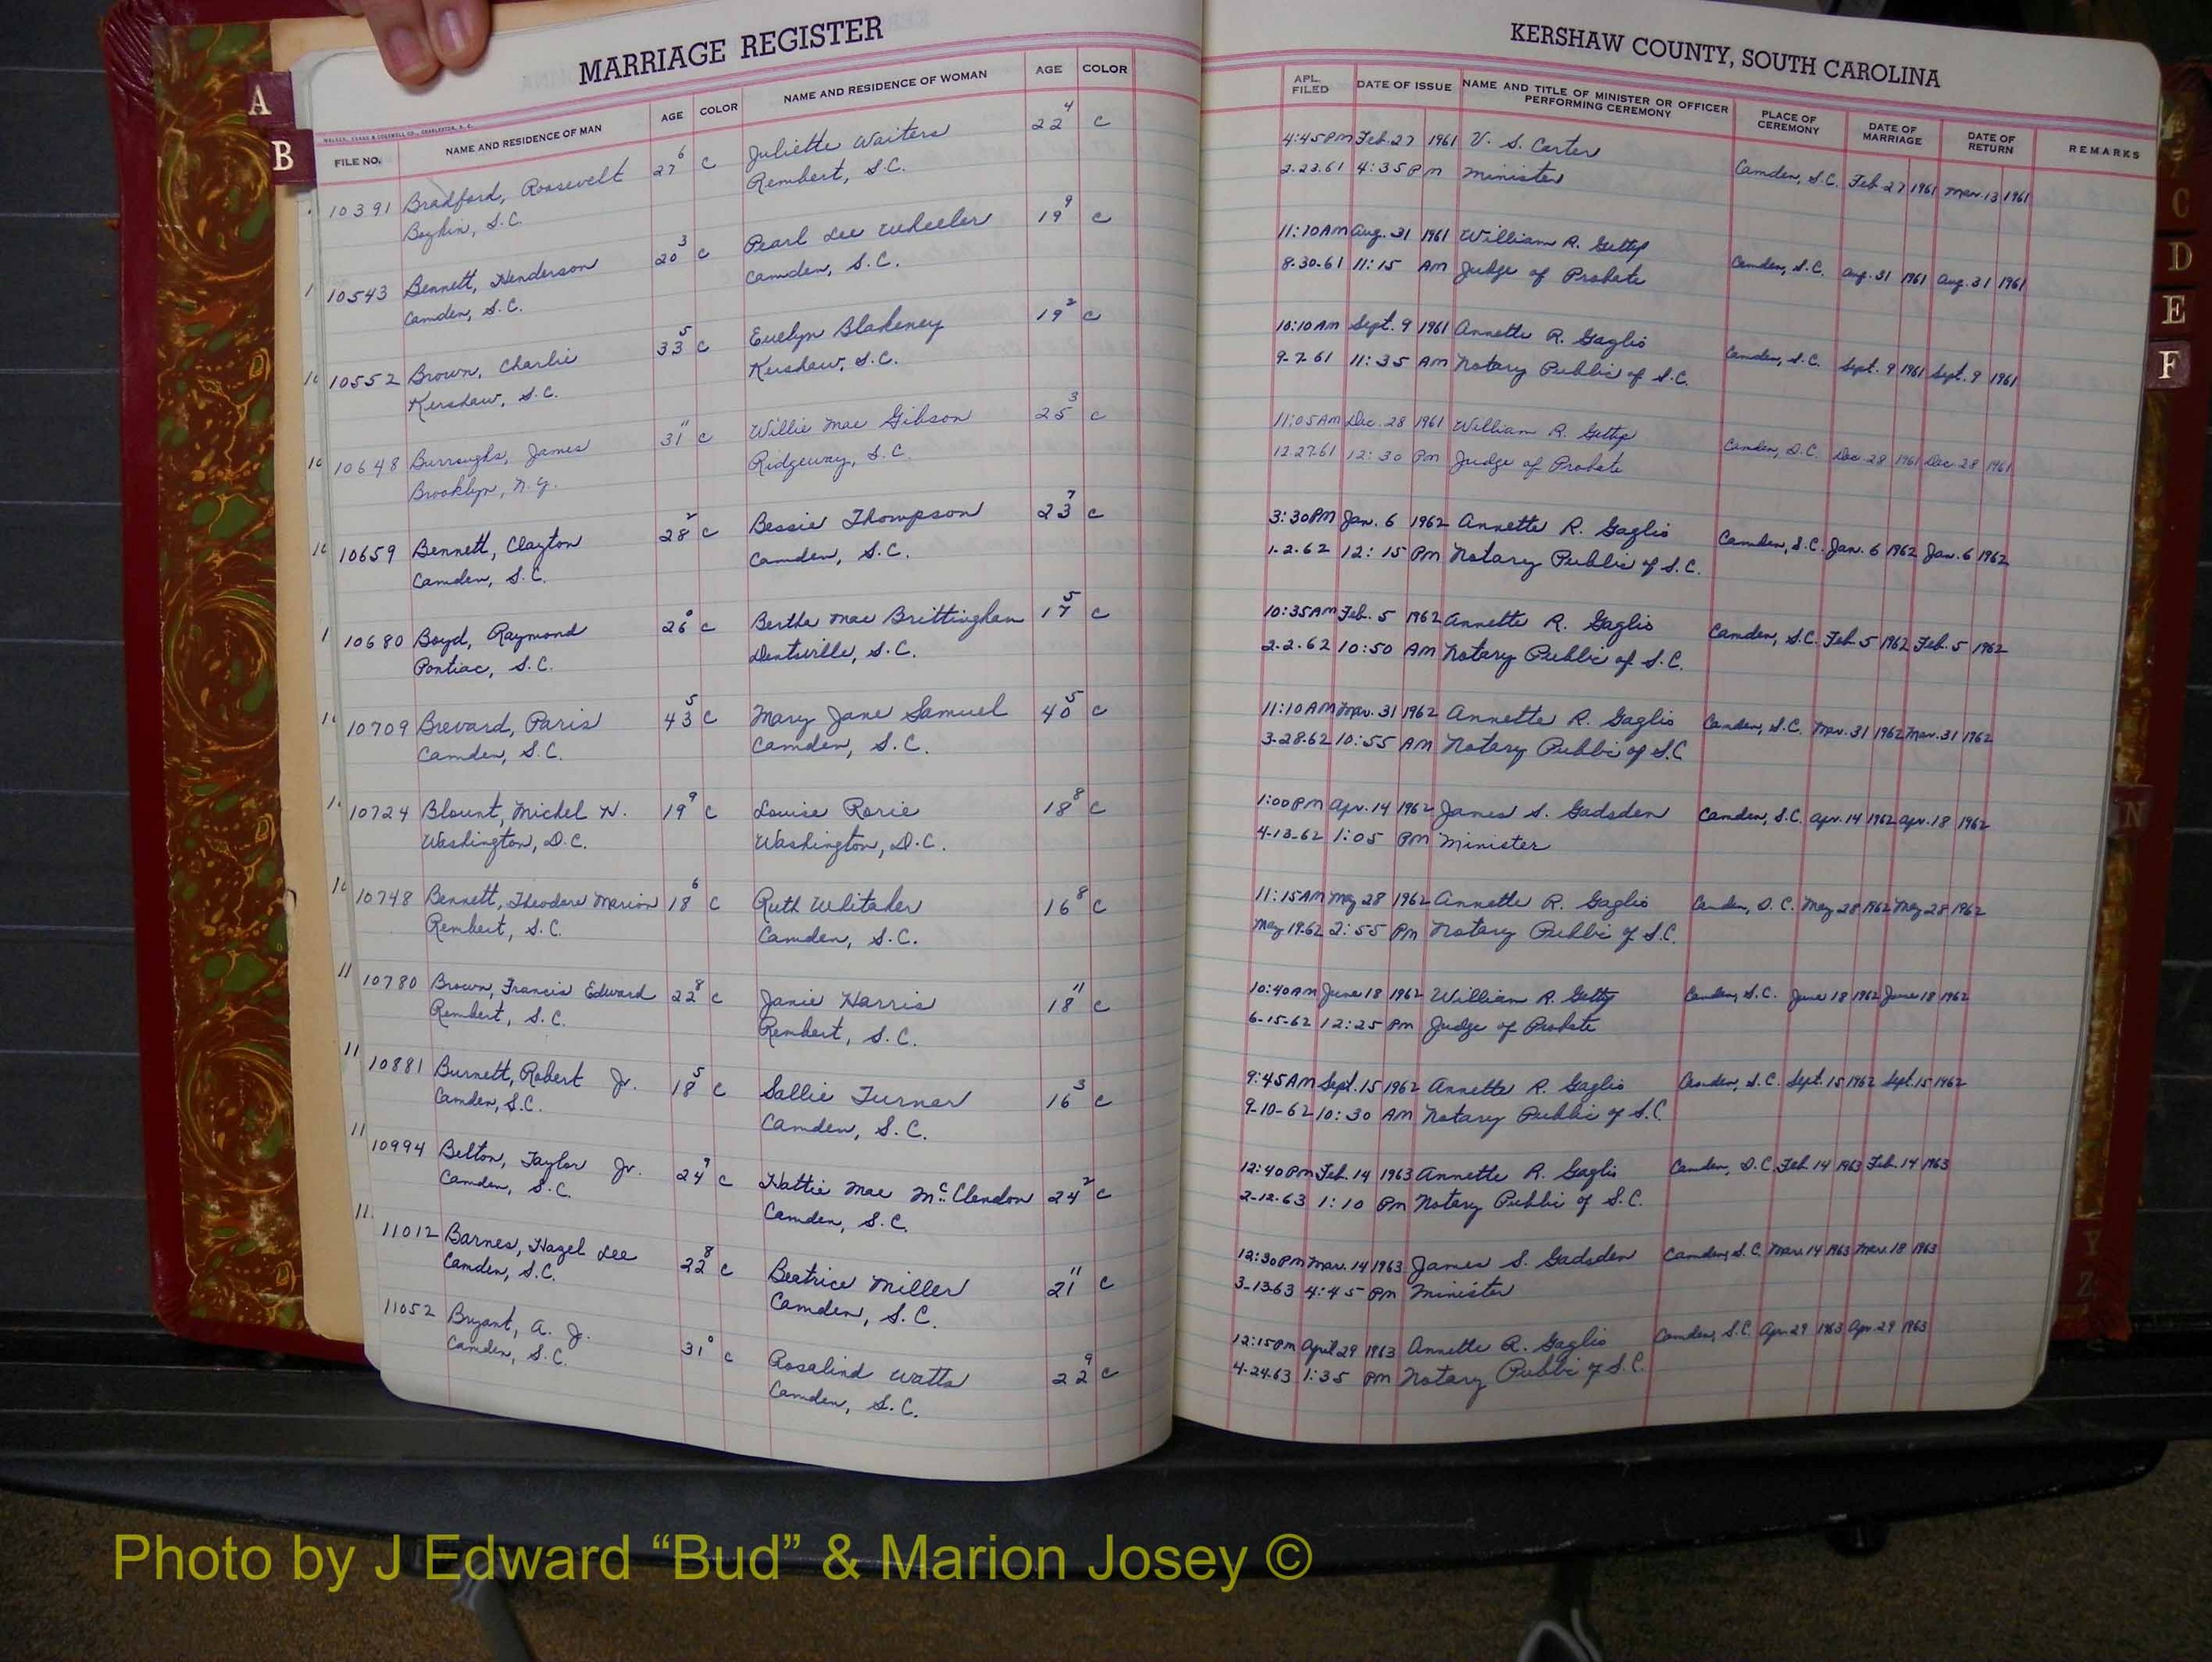 MARRIAGE REGISTER
WALKER, EVANS & COGSWELL CO., CHARLESTON, S. C.
FILE NO. NAME AND RESIDENCE OF MAN AGE COLOR NAME AND RESIDENCE OF WOMAN AGE COLOR
A
B
10391 Bradford, Roosevelt 27 6 C Juliette Waiters 22 4 C
Boykin, S.C. Rembert, S.C.
10543 Bennett, Henderson 20 3 C Pearl Lee Wheeler 19 9 C
Camden, S.C. Camden, S.C.
10552 Brown, Charlie 33 5 C Evelyn Blakeney 19 2 C
Kershaw, S.C. Kershaw, S.C.
10648 Burroughs, James 31 11 C Willie Mae Gibson 25 3 C
Brooklyn, N.Y. Ridgeway, S.C.
10659 Bennett, Clayton 28 2 C Bessie Thompson 23 7 C
Camden, S.C. Camden, S.C.
10680 Boyd, Raymond 26 0 C Bertha Mae Brittingham 17 5 C
Pontiac, S.C. Dentsville, S.C.
10709 Brevard, Paris 43 5 C Mary Jane Samuel 40 5 C
Camden, S.C. Camden, S.C.
10724 Blount, Michel N. 19 9 C Louise Rorie 18 8 C
Washington, D.C. Washington, D.C.
10748 Bennett, Theodore Marion 18 6 C Ruth Whitaker 16 8 C
Rembert, S.C. Camden, S.C.
10780 Brown, Francis Edward 22 8 C Janie Harris 18 11 C
Rembert, S.C. Rembert, S.C.
10881 Burnett, Robert Jr. 18 5 C Sallie Turner 16 3 C
Camden, S.C. Camden, S.C.
10994 Belton, Taylor Jr. 24 9 C Hattie Mae McClendon 24 2 C
Camden, S.C. Camden, S.C.
11012 Barnes, Hazel Lee 22 8 C Beatrice Miller 21 11 C
Camden, S.C. Camden, S.C.
11052 Bryant, A. J. 31 0 C Rosalind Watts 22 9 C
Camden, S.C. Camden, S.C.
KERSHAW COUNTY, SOUTH CAROLINA
APL. FILED DATE OF ISSUE NAME AND TITLE OF MINISTER OR OFFICER PERFORMING CEREMONY PLACE OF CEREMONY DATE OF MARRIAGE DATE OF RETURN REMARKS
4:45PM Feb. 27 1961 V. S. Carter Camden, S.C. Feb. 27 1961 Mar. 13 1961
2.23.61 4:35 PM Minister
11:10AM Aug. 31 1961 William R. Gettys Camden, S.C. Aug. 31 1961 Aug. 31 1961
8.30-61 11:15 AM Judge of Probate
10:10AM Sept. 9 1961 Annette R. Gaglio Camden, S.C. Sept. 9 1961 Sept. 9 1961
9-7-61 11:35 AM Notary Public of S.C.
11:05AM Dec. 28 1961 William R. Gettys Camden, S.C. Dec 28 1961 Dec 28 1961
12.27.61 12:30 PM Judge of Probate
3:30PM Jan. 6 1962 Annette R. Gaglio Camden, S.C. Jan. 6 1962 Jan. 6 1962
1.2.62 12:15 PM Notary Public of S.C.
10:35AM Feb. 5 1962 Annette R. Gaglio Camden, S.C. Feb. 5 1962 Feb. 5 1962
2.2.62 10:50 AM Notary Public of S.C.
11:10AM Mar. 31 1962 Annette R. Gaglio Camden, S.C. Mar. 31 1962 Mar. 31 1962
3-28-62 10:55 AM Notary Public of S.C
1:00PM Apr. 14 1962 James S. Gadsden Camden, S.C. Apr. 14 1962 Apr. 18 1962
4-13-62 1:05 PM Minister
11:15AM May 28 1962 Annette R. Gaglio Camden, S.C. May 28 1962 May 28 1962
May 19-62 2:55 PM Notary Public of S.C.
10:40AM June 18 1962 William R. Gettys Camden, S.C. June 18 1962 June 18 1962
6-15-62 12:25 PM Judge of Probate
9:45AM Sept. 15 1962 Annette R. Gaglio Camden, S.C. Sept. 15 1962 Sept. 15 1962
9-10-62 10:30 AM Notary Public of S.C
12:40PM Feb. 14 1963 Annette R. Gaglio Camden, S.C. Feb. 14 1963 Feb. 14 1963
2-12-63 1:10 PM Notary Public of S.C.
12:30PM Mar. 14 1963 James S. Gadsden Camden, S.C. Mar. 14 1963 Mar. 18 1963
3-13-63 4:45 PM Minister
12:15PM April 29 1963 Annette R. Gaglio Camden, S.C. Apr. 29 1963 Apr. 29 1963
4-24-63 1:35 PM Notary Public of S.C.
C
D
E
F
N
Y
Z
Photo by J Edward “Bud” & Marion Josey ©